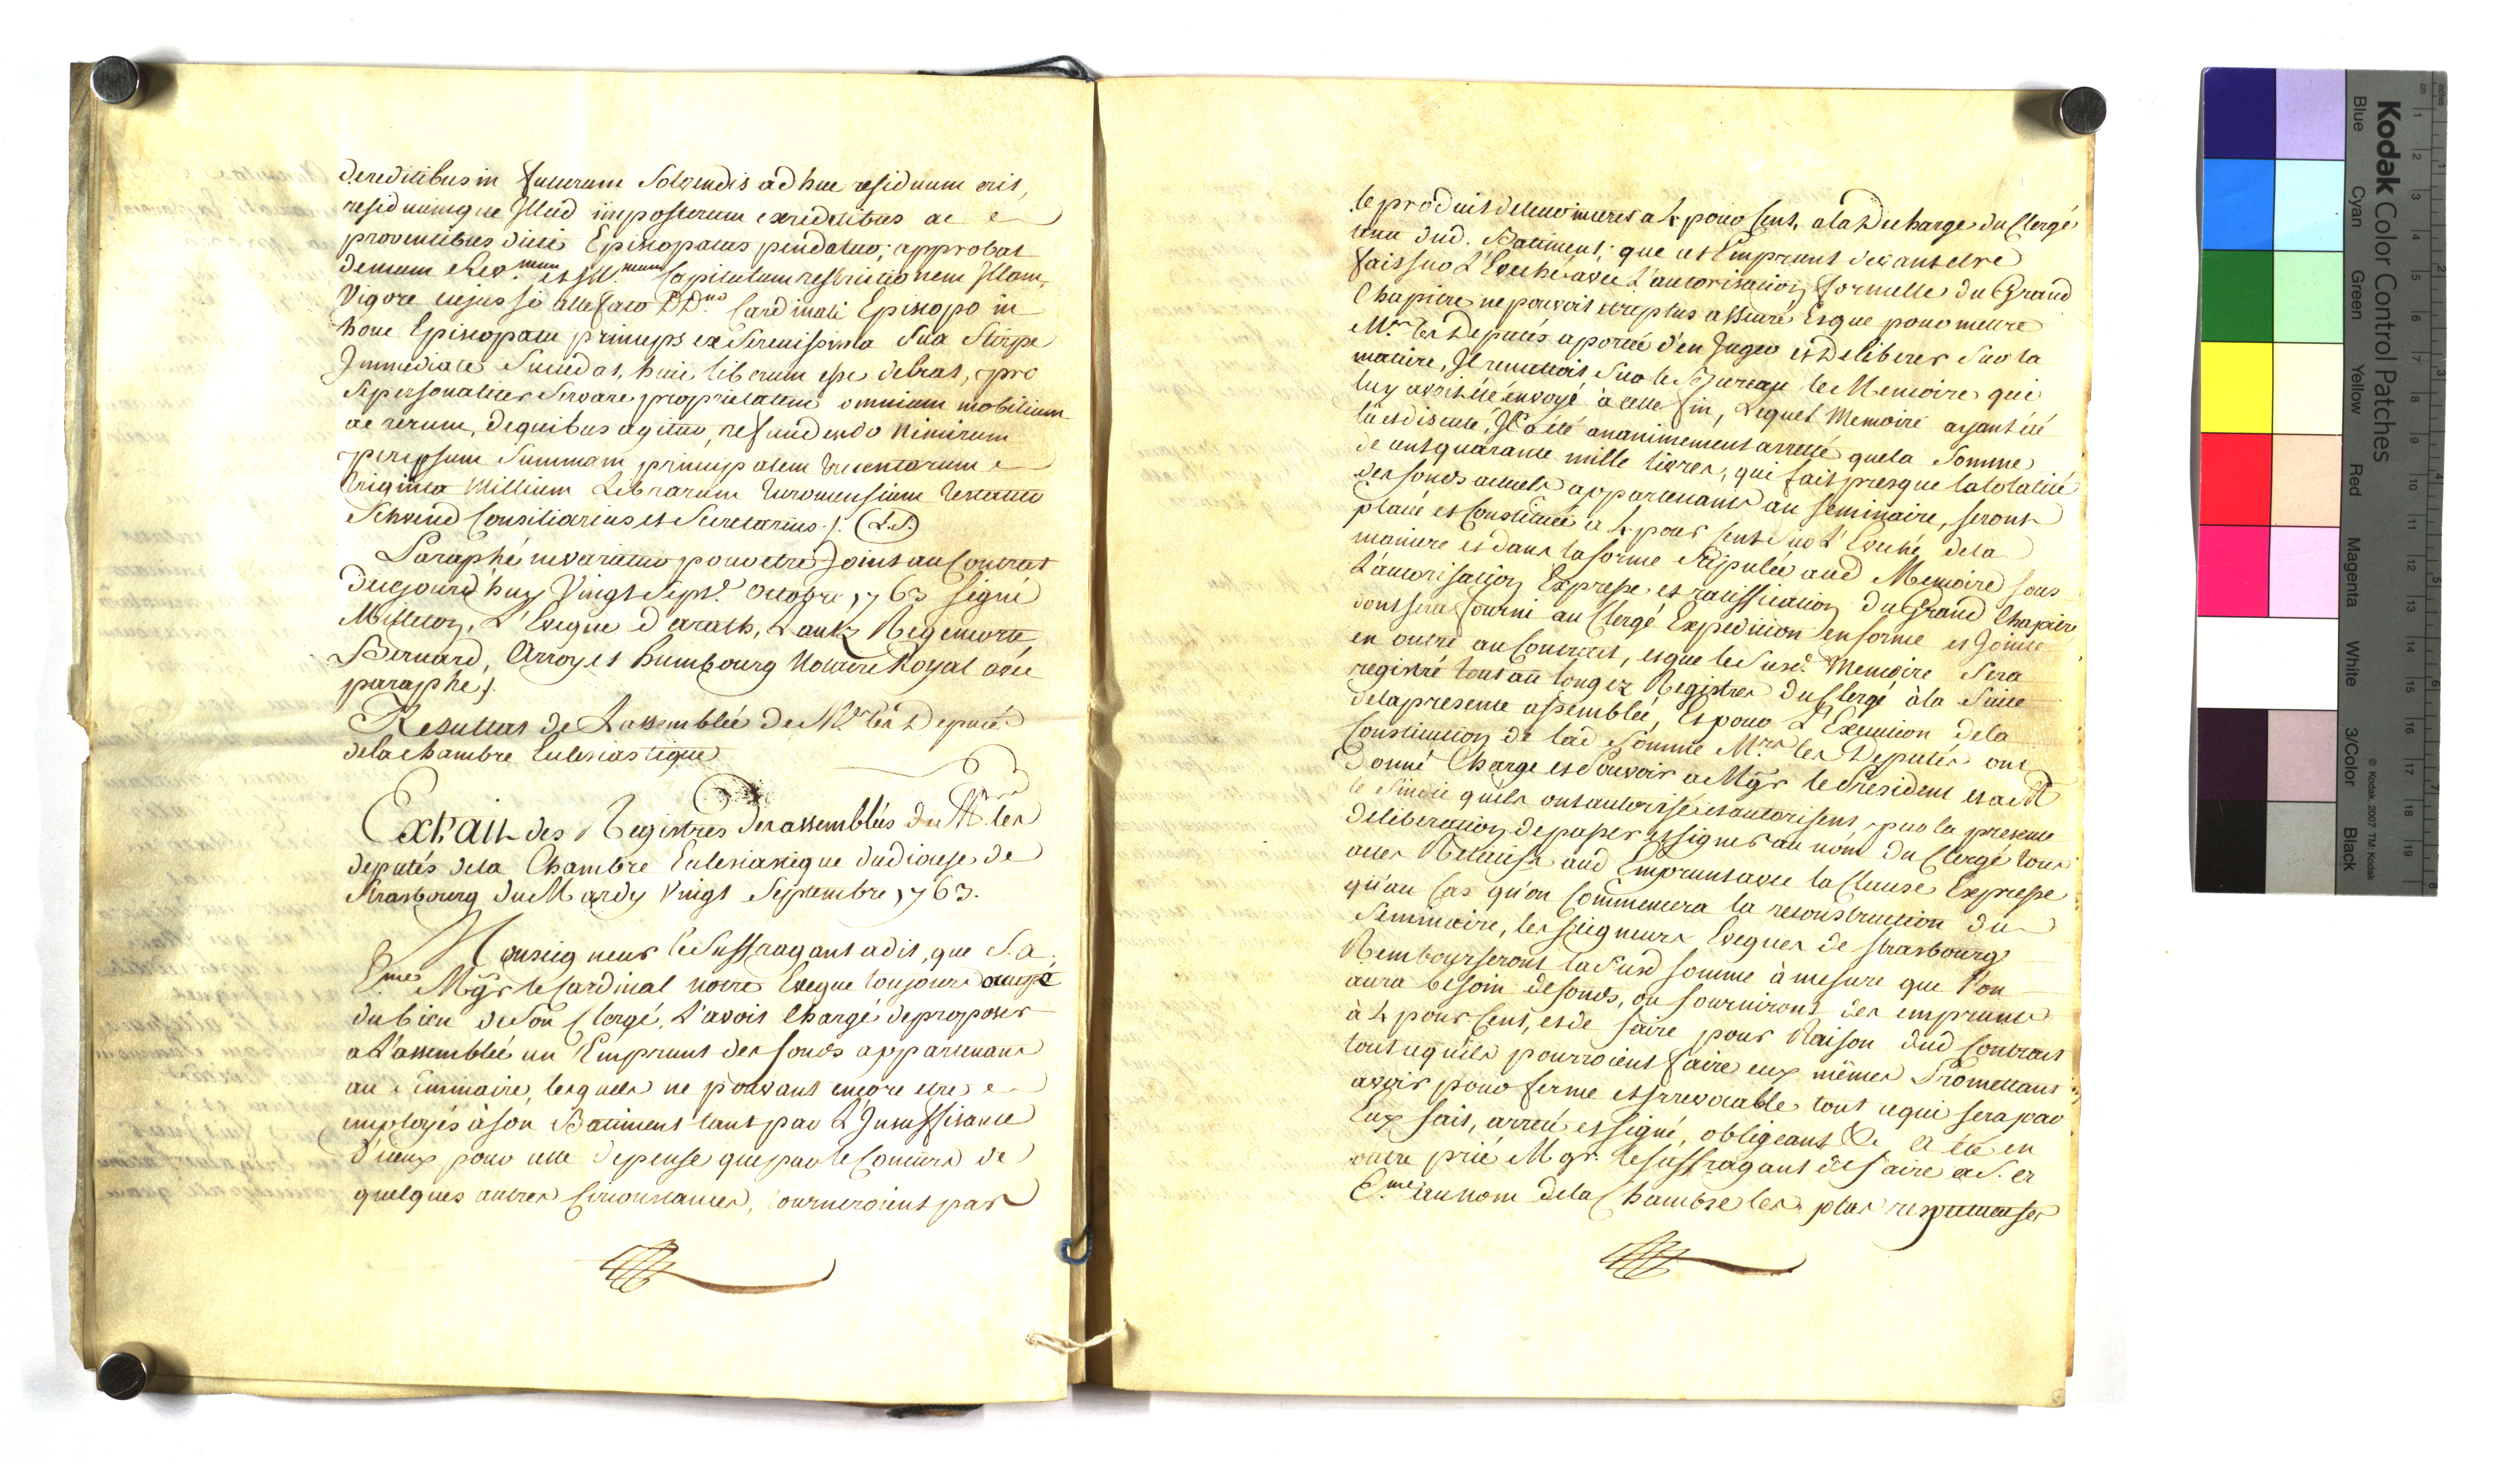 de reditibus in futurum Solvendis ad huc residuum erit,
residuumque Illud imposterum ex reditibus ac
proventibus dicti Episcopatus pendatur; approbat
demum Rev.mum et Ill.mum Capitulum restrictionem Illam,
Vigore cujus si alte fato DD.no Cardinali Episcopo in
hoce Episcopatu princeps ex Serenissima Sua Stirpe
Immediate Succedat, huic liberum esse debeat, pro
Se personaliter Servare proprietatem omnium mobilium
ac rerum, de quibus agitur, refundendo Nimirum
per ipsum Summam principalem trecentorum
triginta Millium Librarum Turonensium
Schwend Consiliarius et Secretarius ./. (L.S.)
Paraphé ne varietur pour etre Joint au Contrat
du ce jourd'huy Vingt Sept.e Octobre 1763 signé
L'Eveque d'arath, Lantz Regemorte
Bernard, Arroy et humbourg Notaire Royal avec
paraphé ./.
Resultat de L'assemblée de M.rs les Deputés
de la Chambre Eclesiastique
Extrait des Registres des assemblées de M.rs les
deputés de la Chambre Eclesiastique du diocese de
Strasbourg du Mardy Vingt Septembre 1763.
Monseigneur le Suffragant a dit, que S. a.
E.me Mgr le Cardinal notre Eveque toujours occupé
du bien de Son Clergé, L'avoit Chargé de proposer
a L'assemblée un Emprunt des fonds appartenans
au Seminaire, lesquels ne pouvant encore etre
employés à son Batiment tant par L'Insuffisance
d'iceux pour une depense que par le Concours de
quelques autres Circonstances, tourneroient par
le produit de leur interet a 4 pour Cent, a la Decharge du Clergé
dud. Batiment; que cet Emprunt devant etre
fait sur L'Eveché avec L'autorisation formelle du Grand
Chapitre ne pouvoit etre plus asseuré Et que pour mettre
M.rs les Deputés a portée d'en Juger et Deliberer Sur la
matiere, Il remettoit Sur le Bureau le Memoire qui
luy avoit été envoyé à cette fin, Lequel Memoire ayant été
lu et discuté, Il a été unanimement arretté que la Somme
de cent quarante mille livres, qui fait presque la totalité
des fonds actuels appartenants au Seminaire, seront
placée et Constituée a 4 pour Cent Sur L'Eveché de la
maniere et dans la forme Stipulée aud Memoire sous
L'autorisation Expresse et ratiffication du Grand Chapitre
dont sera fourni au Clergé Expedition en forme et Jointe
en outre au Contract, et que le Susd. Memoire Sera
registré tout au long ez Registres du Clergé à la Suite
de la presente assemblée, Et pour L'Exécution de la
Constitution de lad. Somme M.rs les Deputés ont
Donné Charge et Pouvoir a Mgr le President et a M
le Sindic qu'ils ont autorisé et autorisent par la presente
deliberation de passer et signer au nom du Clergé tous
actes Relatifs aud Emprunt avec la Clause Expresse
qu'au Cas qu'on Commencera la reconstruction du
Seminaire, les seigneurs Eveques de Strasbourg
Rembourseront la Susd somme à mesure que l'on
aura besoin de fonds, ou fourniront des emprunts
à 4 pour Cent, et de faire pour Raison dud Contrat
tout ce qu'ils pourroient faire eux mêmes Promettant
avoir pour ferme et Irrevocable tout ce qui sera par
Eux fait, arreté et signé, obligeant &c a été en
outre prié Mgr. le suffragant de faire a S. a
E.me au nom de la Chambre les plus respectueuses